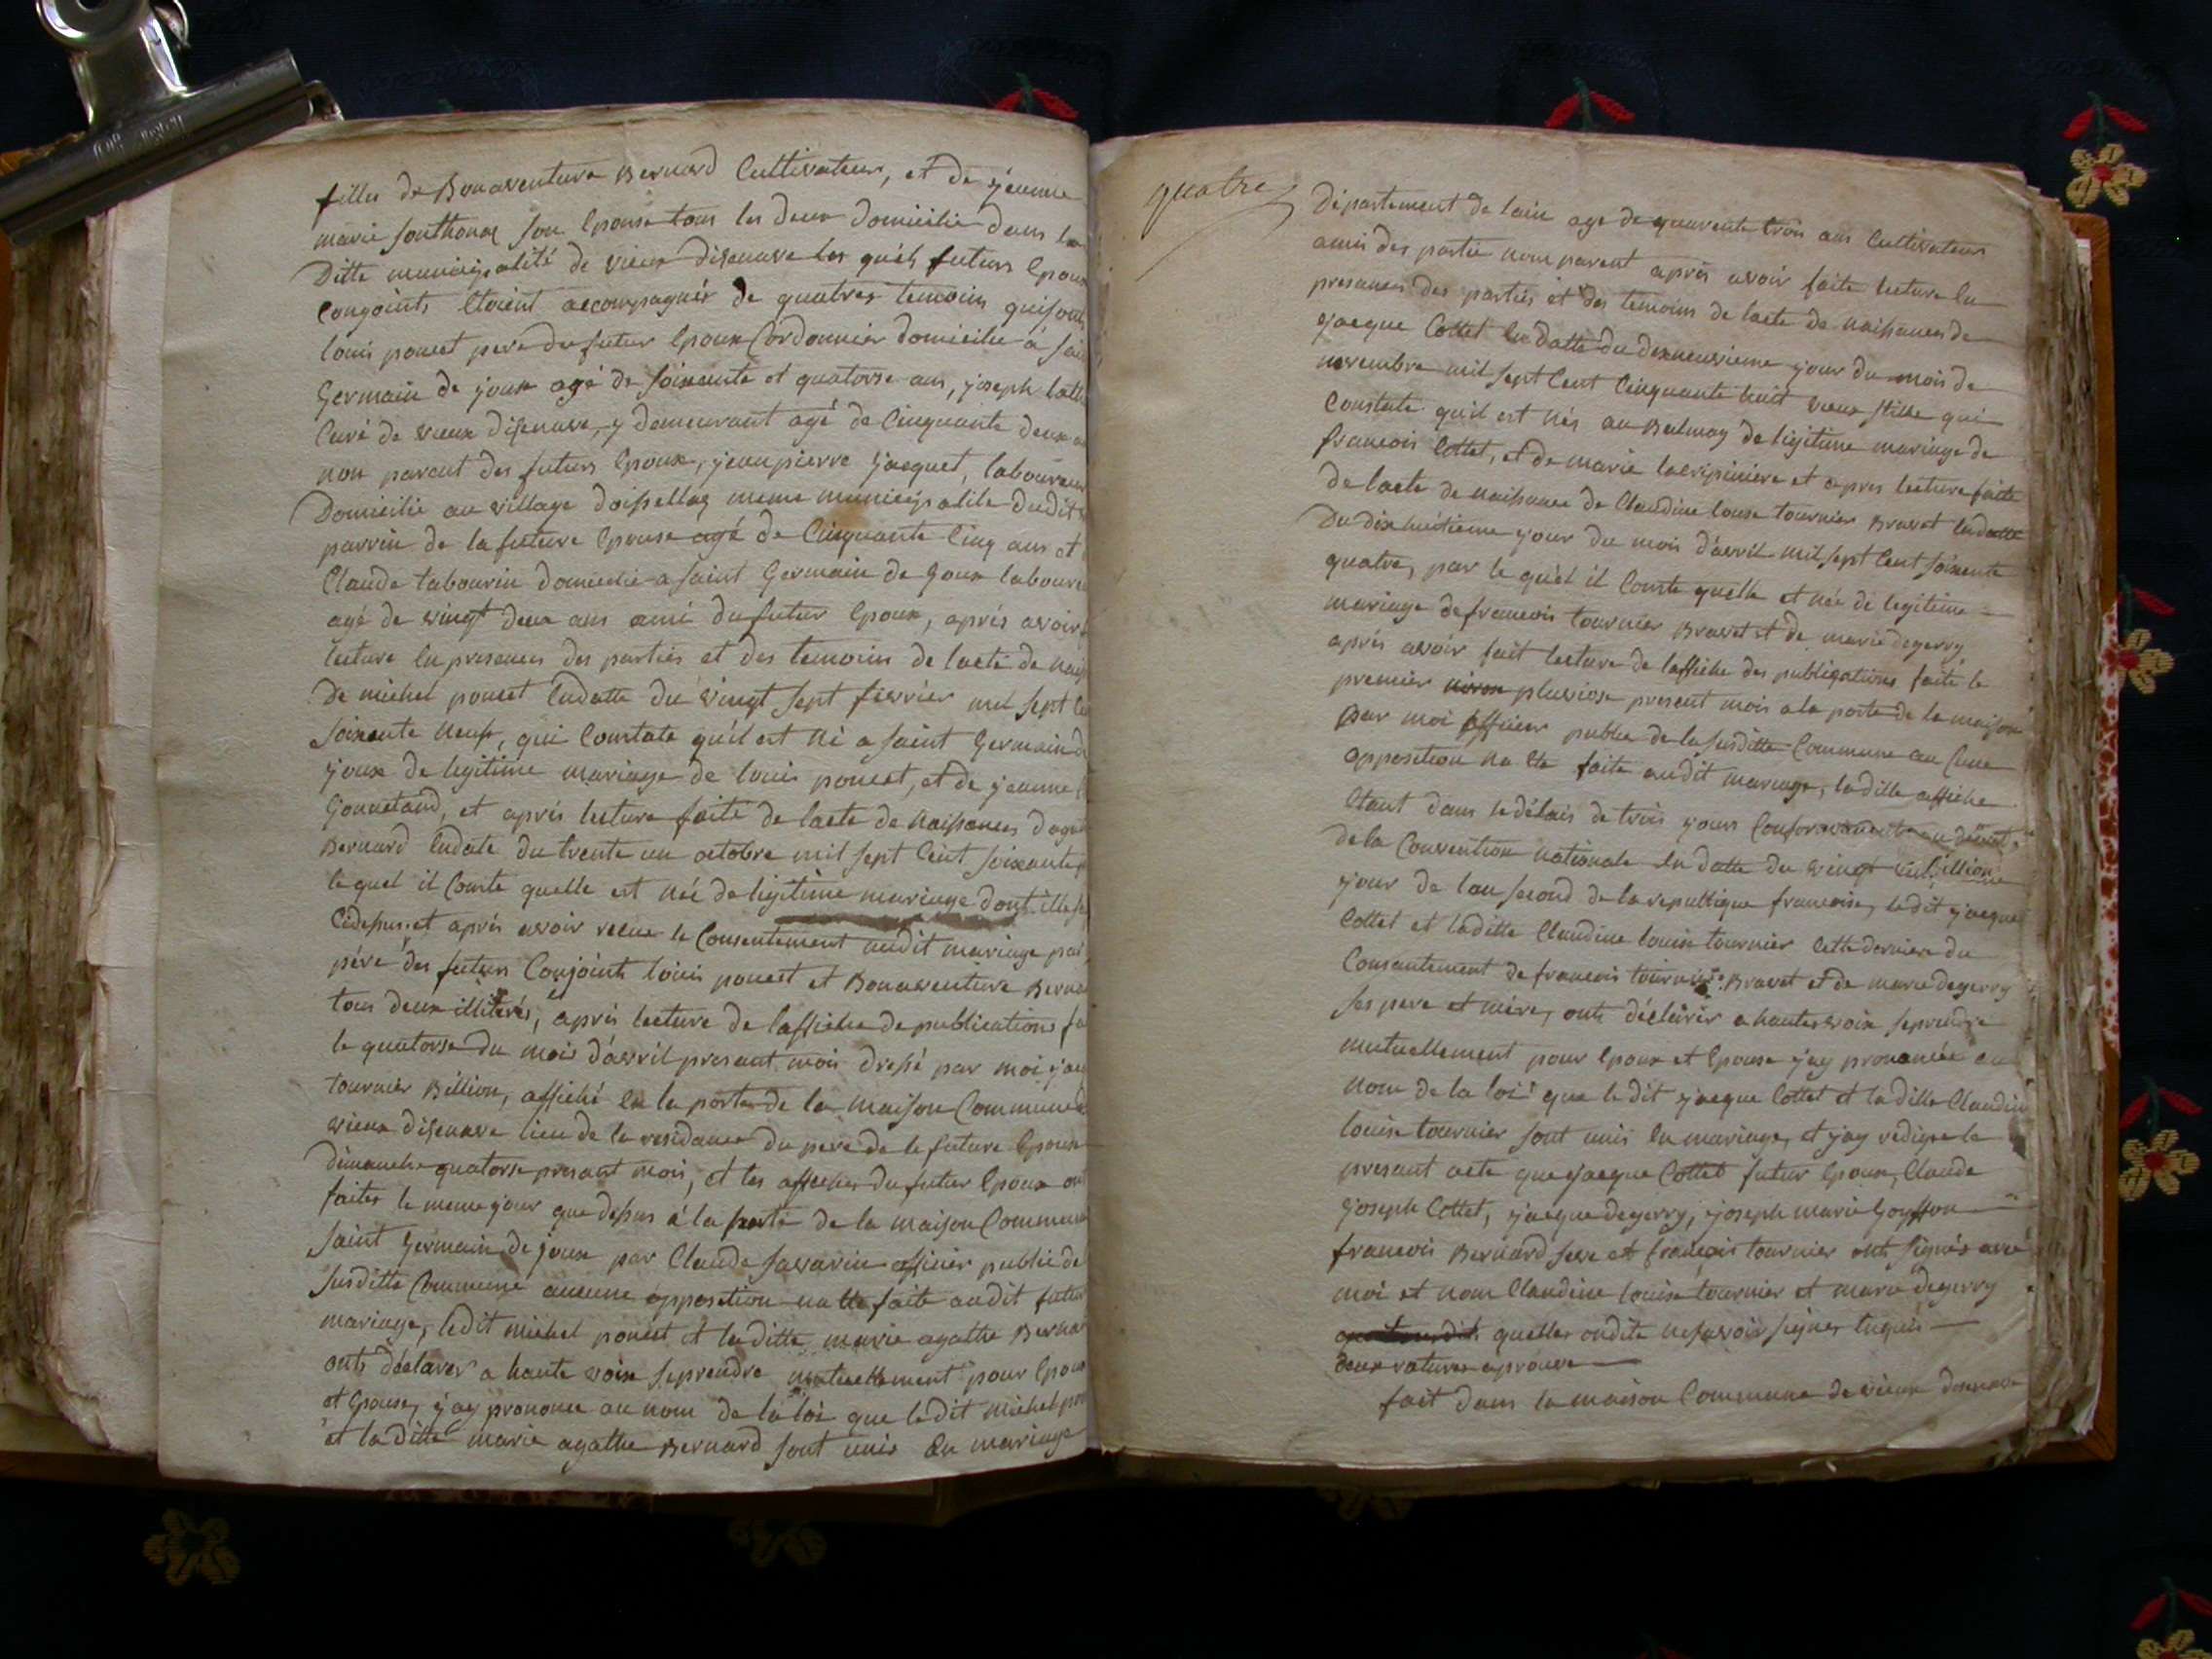 filles de Bonaventure Bernard Cultivateur, et de jeanne
marie Sonthonax son Epouse tous les deux domicilié dans la
Ditte municipalité de vieux disenave les quels futurs Epoux
Conjoints Etoient accompagnés de quatres temoins qui sont
louis poncet pere du futur Epoux Cordonnier domicilié à sai
Germain de joux agé de soixante et quatorse ans, joseph
Curé de vieux disenave, y demeurant agé de Cinquante deux
non parent des futurs Epoux, jean pierre jacquet, laboureur
Domicilié au village doissellaz meme municipalité dudit
parrin de la future Epouse agé de Cinquante Cinq ans et
Claude tabourin domicilié a saint Germain de Goux laboure
agé de vingt deux ans ami du futur Epoux, aprés avoir
lecture En presences des parties et des temoins de lacte de nais
de michel poncet Endatte du vingt sept fevrier mil sept Ce
soixente neuf, qui Constate quil est né a saint Germain d
joux de legitime mariage de louis poncet, et de jeanne
Gonnetand, et aprés lecture faite de lacte de naissances dagat
Bernard Endate du trente un octobre mil sept Cent soixante
le quel il Conste quelle est née de legitime mariage dont
Cidessus, et aprés avoir recue le Consentement audit mariage par
pére des futurs Conjoints louis poncet et Bonaventure Berna
tous deux illiterés, aprés lecture de laffiche de publications fa
le quatorse du mois d'avril presant mois dressé par moi jac
tournier Billion, affiché En la porte de la maison Commune d
vieux disenave lieu de la residance du pere de la future Epouse
dimanche quatorse presant mois, et les affiches du futur Epoux ont
faites le meme jour que dessus à la porte de la maison Commune
saint Germain de joux par Claude savarin officier public de
susditte Commune aucune opposition na Ete faite audit futur
mariage, ledit michel poncet et laditte marie agathe Berna
onts déclarer a haute voix seprendre mutuellement pour Epoux
et Epouse, j'ay prononcé au nom de la loi que ledit michel pon
et laditte marie agathe Bernard sont unis En mariage
quatre
Département de lain agé de quarente trois ans Cultivateur
amis des partie nom parent aprés avoir faite lecture En
presances des parties et des temoins de lacte de naissances de
jacque Cottet En datte du dexneuvieme jour du mois de
novembre mil sept Cent Cinquante huit vieux stille qui
Constate qu'il est nés au Balmay de ligitime mariage de
francois Cottet, et de marie et apres lecture faite
de lacte de naissance de Claudine louse tournier Bravet Endatte
Du dix huitieme jour du mois d'avril mil sept Cent soixente
quatre, par le quel il Conste quelle et née de legitime
mariage de francois tournier Bravet et de marie degerry
aprés avoir fait lecture de laffiche des publications faite le
premier pluviose present mois a la porte de la maison
par moi officier public de la susditte Commune au Cune
opposition na Ete faite audit mariage, laditte affiche
Etant dans le délais de trois jours Conformement au décret
de la Convention nationale En datte du vingt
jour de lan second de la republique francoise, ledit jacque
Cottet et laditte Claudine louise tournier Cette derniere du
Consantement de francois tournier Bravet et de marie degerry
ses pere et mére, onts déclérér a hautes voix seprendre
mutuellement pour Epoux et Epouse j'ay prononcée au
nom de la loi que ledit jacque Cottet et la ditte Claudin
louise tournier sont unis En mariage, et j'ay redigee le
presant acte que jacque Cottet futur Epoux, Claude
joseph Cottet, jacque degerry, joseph marie Goyffon
francois Bernard seve et françois tournier onts signés avec
moi et nom Claudine louise tournier et marie degerry
quelles ondite ne savoir signer
deux ratures aprouvé
fait dans la maison Commune de vieux disenave